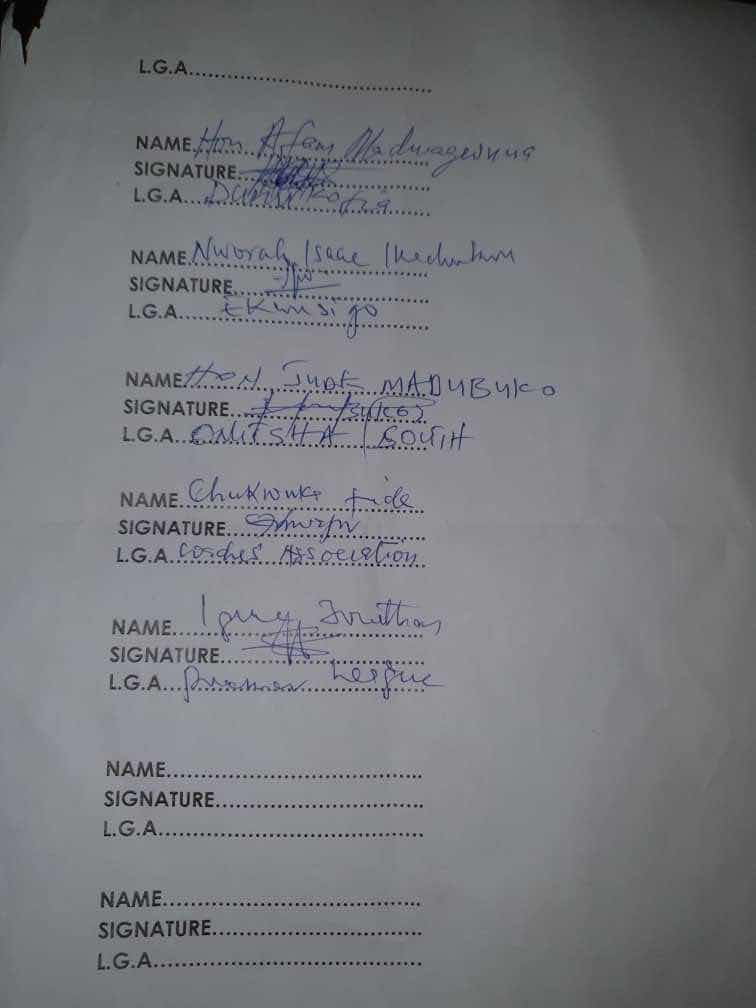 L.G.A..............................
NAME Hon Afam Maduagwuna
SIGNATURE
L.G.A Dunukofia
NAME Nworah Isaac Ikechukwu
SIGNATURE
L.G.A Ekwusigo
NAME HON JUDE MADUBUKO
SIGNATURE
L.G.A ONITSHA SOUTH
NAME Chukwuka fide
SIGNATURE
L.G.A Coaches' Association
NAME Jonathan
SIGNATURE
L.G.A League
NAME..............................
SIGNATURE..............................
L.G.A..............................
NAME..............................
SIGNATURE..............................
L.G.A..............................